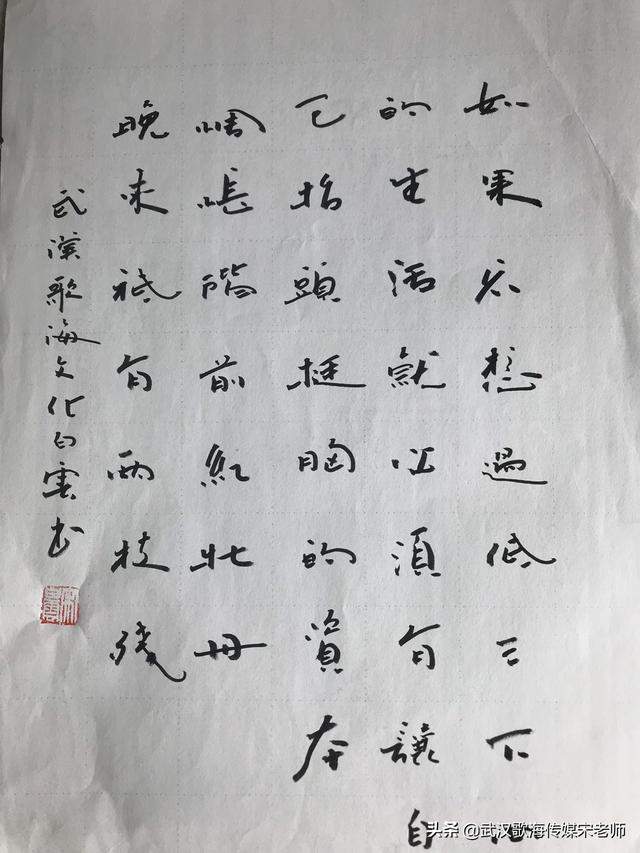 如果不想過低三下
的生活就必須有讓自
己抬頭挺胸的資本
惆悵階前紅牡丹
晚來祗有兩枝殘
武漢歌海文化白雲书
头条 @武汉歌海传媒宋老师